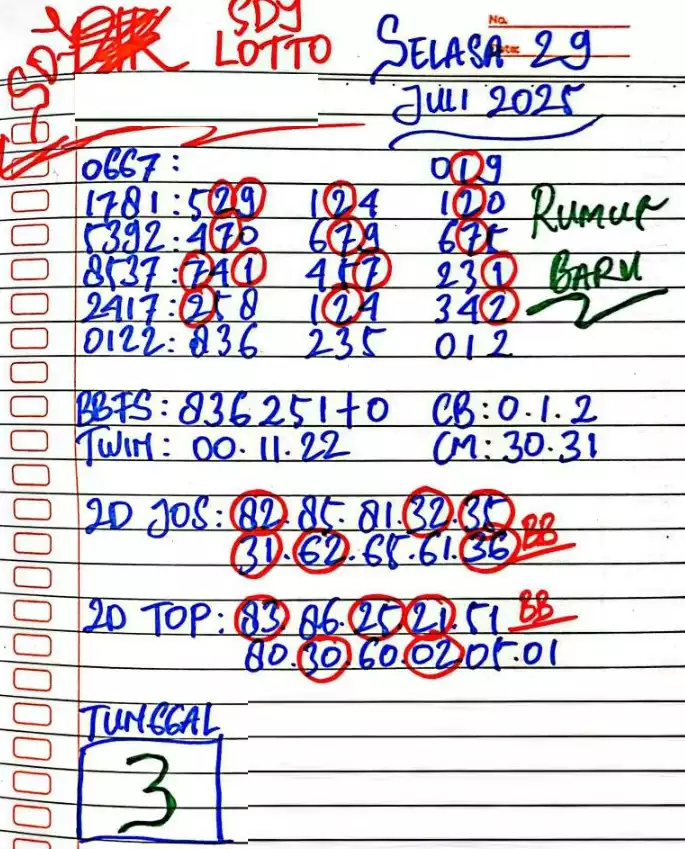 SDY LOTTO
SELASA 29
JULI 2025
No.
SDY
0667: 019
1781: 529 124 120
5392: 470 679 675
8537: 741 457 231
2417: 258 124 342
0122: 836 235 012
RUMUS
BARU
BBFS: 836251+0 CB: 0.1.2
TWIN: 00.11.22 CM: 30.31
2D JOS: 82.85.81.32.35
31.62.65.61.36 BB
2D TOP: 83.86.25.21.51 BB
80.30.60.02.05.01
TUNGGAL
3